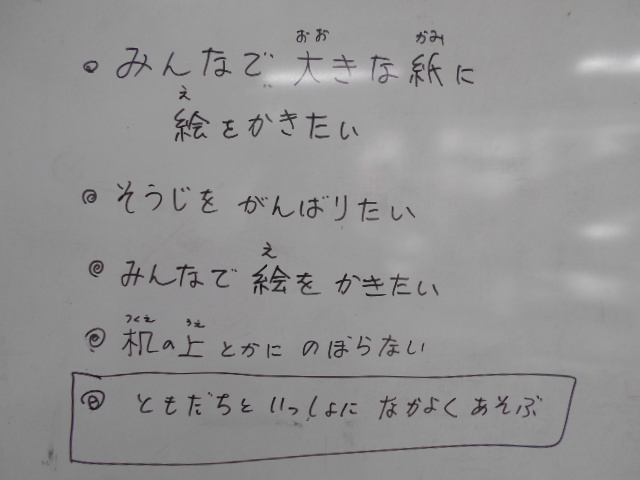 • みんなで大きな紙に
おお かみ
え
絵をかきたい
• そうじをがんばりたい
え
• みんなで絵をかきたい
つくえ うえ
• 机の上とかにのぼらない
• ともだちといっしょになかよくあそぶ